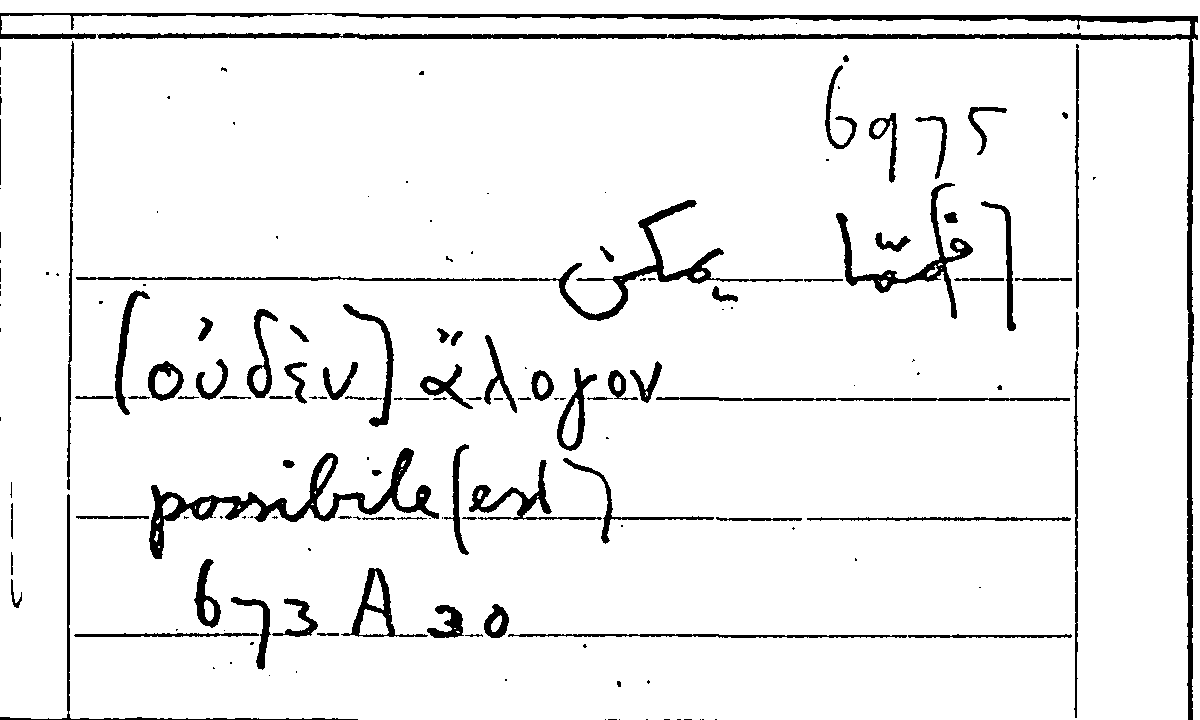 6975
يمكن
(οὐδὲν) ἄλογον
possibile (est)
673 A 30